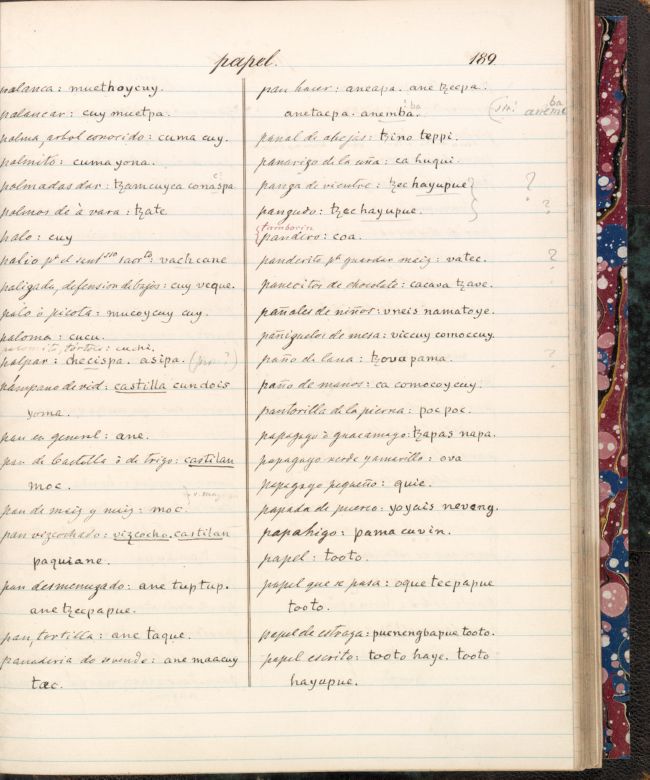 papel. 189
palanca: muethoycuy.
palancar: cuy muetpa.
palma, arbol conocido: cuma cuy.
palmito: cuma yona.
palmadas dar: tzamcuyca conacspa
palmos de à vara: tzate.
palo: cuy
palio pa el sentsso sacrto: vach cane
palizada, defension debajos: cuy veque.
palo ò picota: mucoycuy cuy.
paloma: cucu.
palomita, tortola: cuchi.
palpar: checispa. asipa. (pro?)
pámpano de vid: castilla cundois
yoma.
pan en general: ane.
pan de Castilla ò de trigo: castilan
moc.
pan de maiz y maiz: moc.
pan vizcochado: vizcocho.castilan
paquiane.
pan desmenuzado: ane tuptup.
ane tzecpapue.
pan, tortilla: ane taque.
panaderia do se vende: ane maacuy
tac.
pan hacer: aneapa. ane tzecpa.
anetacpa. anemba. ba
(sic: anem ba
panal de abejas: tzino teppi.
panarizo de la uña: ca huqui.
panza de vientre: tzechayupue ?
panzudo: tzechayupue. ?
tamborin
pandero: coa.
panderito pa guardar maiz: vatec. ?
panecitos de chocolate: cacava tzave.
pañales de niños: vneis namatoye.
pañizuelos de mesa: viccuy comoccuy.
paño de lana: tzova pama. ?
paño de manos: ca comocoycuy.
pantorilla de la pierna: poc poc.
papagayo ò guacamayo: tzapas napa.
papagayo verde y amarillo: ova
papagayo pequeño: quie.
papada de puerco: yoyais neveng.
papahigo: pama cuvin.
papel: tooto.
papel que se pasa: oque tecpapue
tooto.
papel de estraza: puenengbapue tooto.
papel escrito: tooto haye. tooto
hayupue.